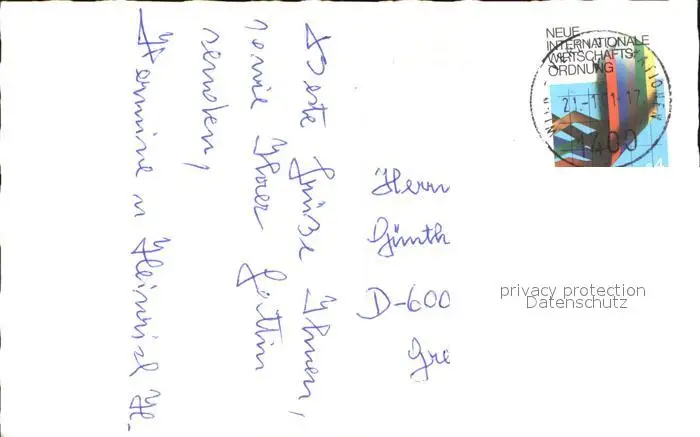 Beste Grüße Ihnen,
sowie Ihrer Gattin
senden,
Hermine u Heinrich H.
Herrn
Günth
D-600
Gre
NEUE
INTERNATIONALE
WIRTSCHAFTS-
ORDNUNG
1400
privacy protection
Datenschutz